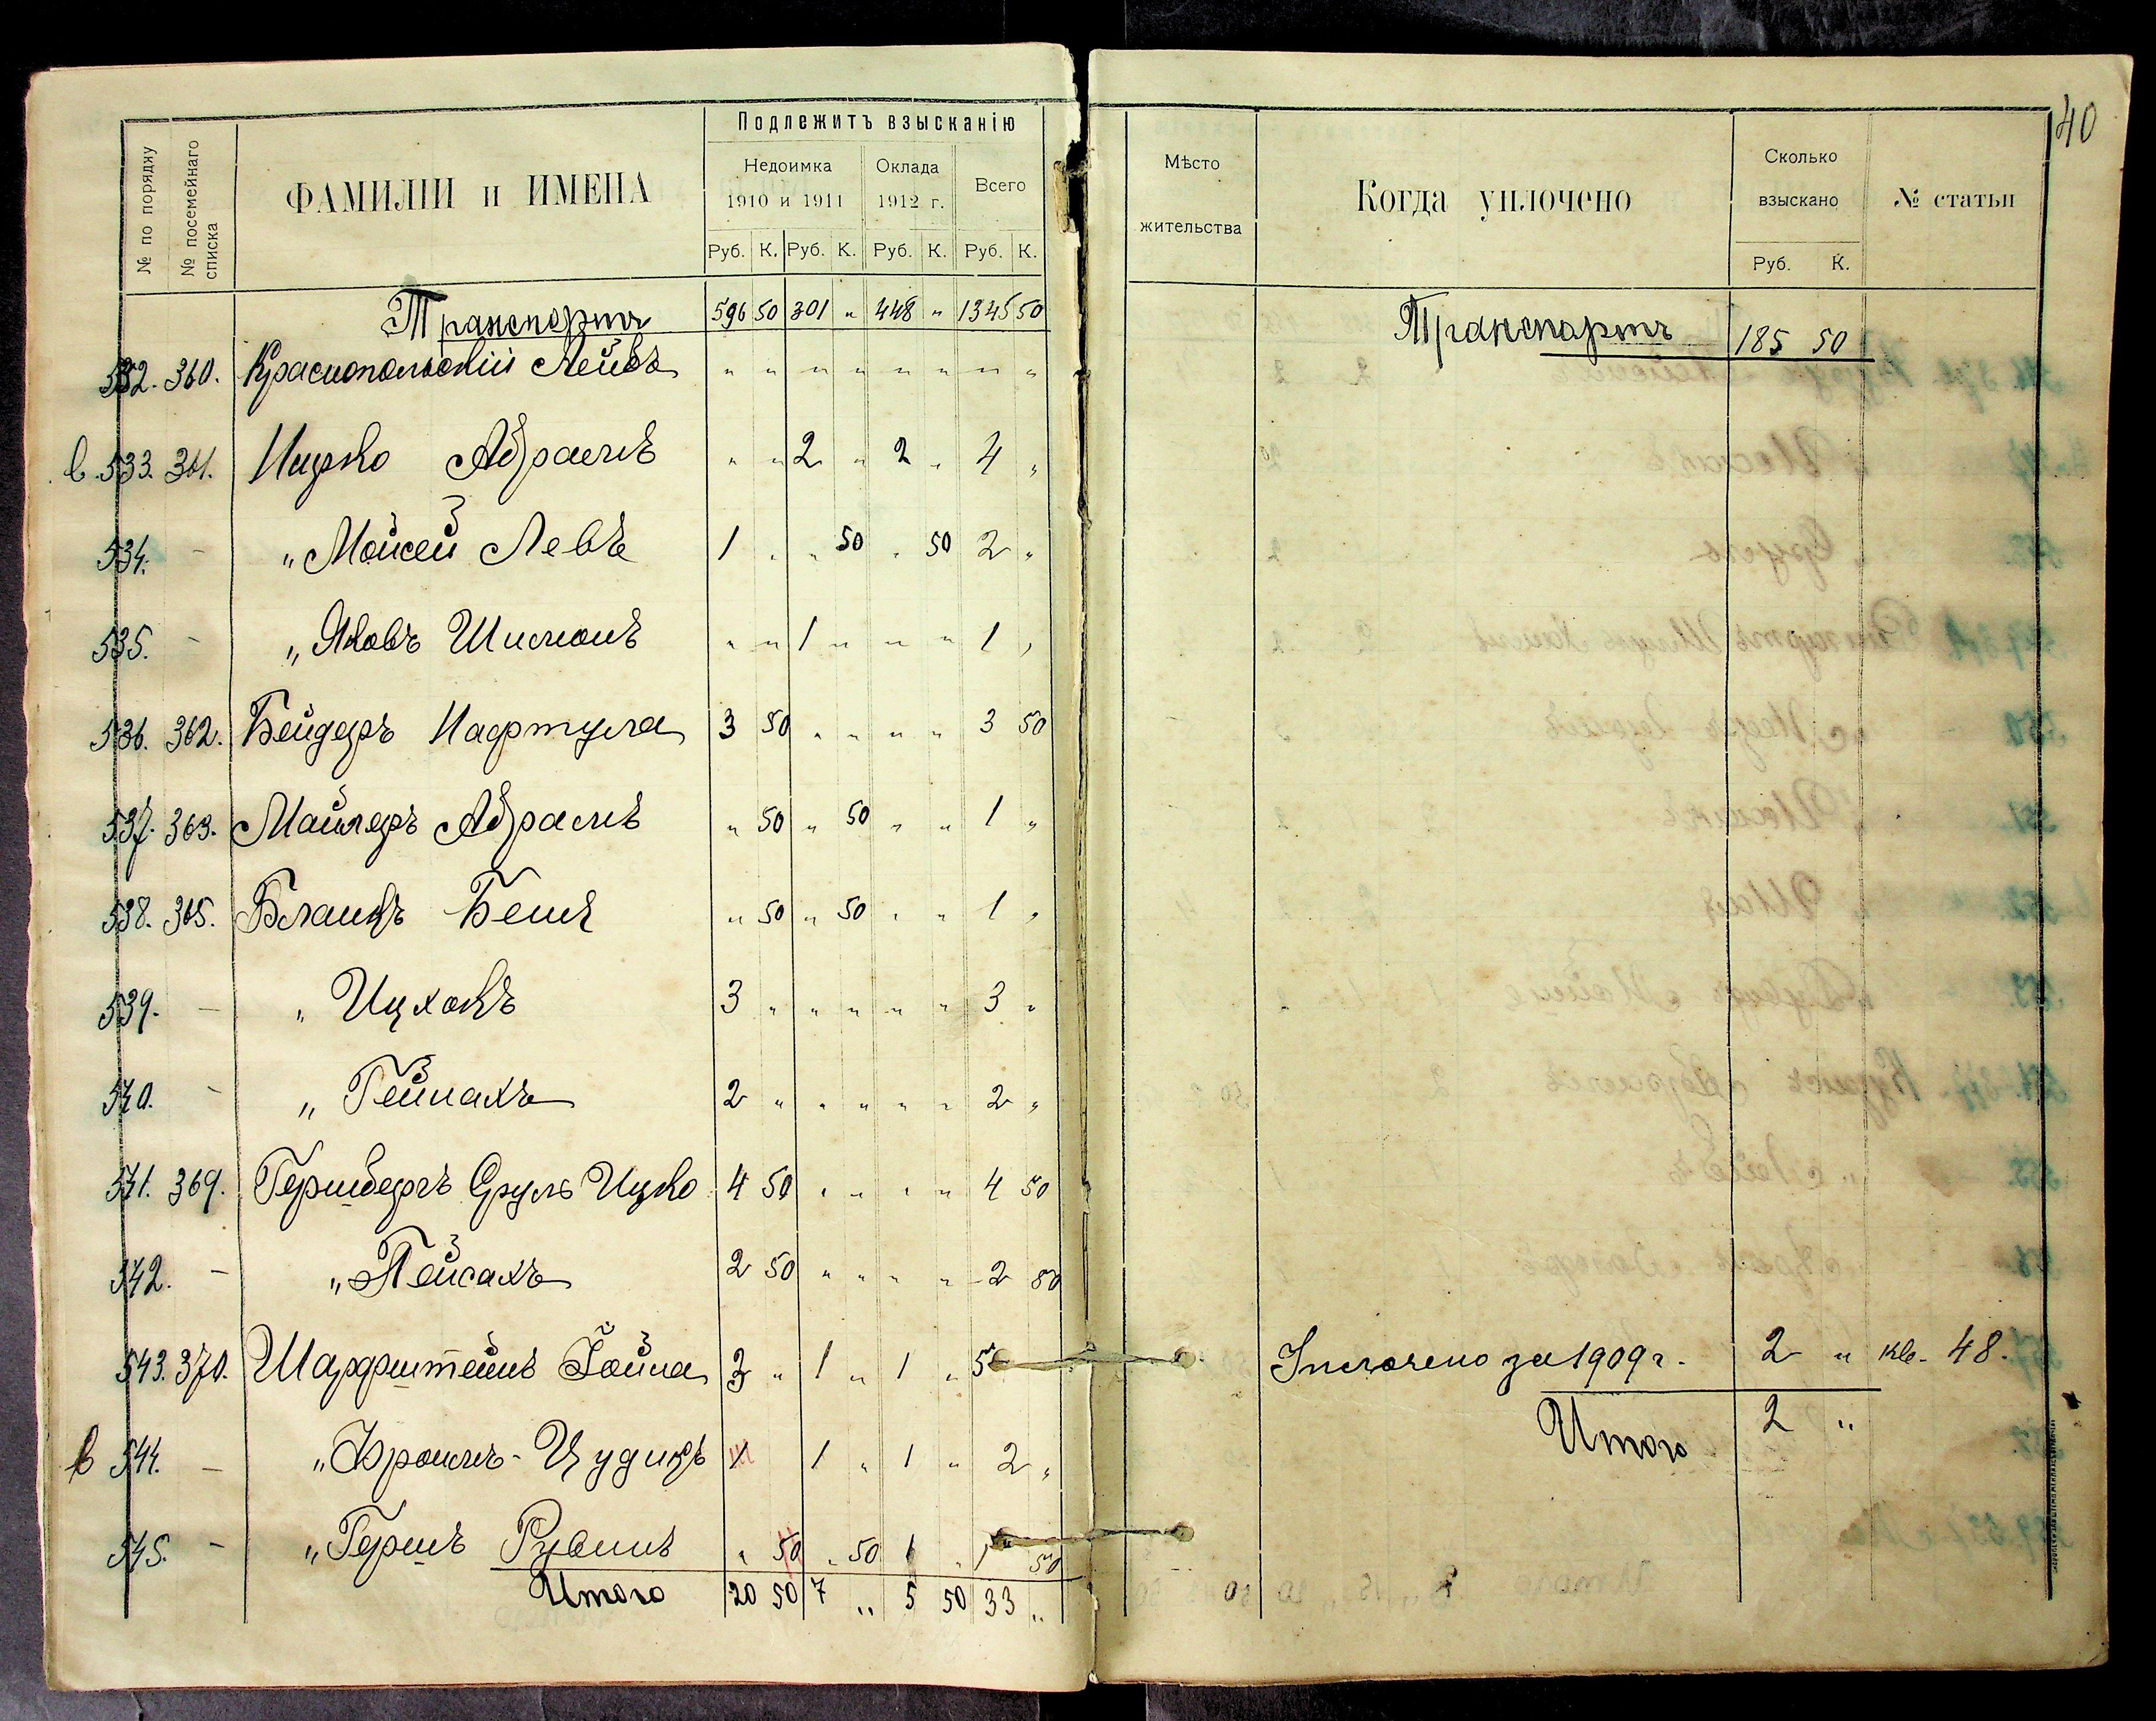 40
№ по порядку
№ посемейнаго списка
ФАМИЛІИ и ИМЕНА
Подлежитъ взысканію
Недоимка 1910 и 1911
Оклада 1912 г.
Всего
Руб. К. Руб. К. Руб. К. Руб. К.
Транспортъ 596 50 301 " 448 " 1345 50
532. 360. Краснопольскій Лейбъ " " " " " " " "
в. 533. 361. Ицко Абрамъ " " 2 " 2 " 4 "
534. - " Мойсей Левъ 1 " " 50 " 50 2 "
535. - " Яковъ Шимонъ " " 1 " " " 1 "
536. 362. Бейдеръ Нафтула 3 50 " " " " 3 50
537. 363. Майлеръ Абрамъ " 50 " 50 " " 1 "
538. 365. Бланкъ " 50 " 50 " " 1 "
539. - " Ицхокъ 3 " " " " " 3 "
540. - " 2 " " " " " 2 "
541. 369. Гершбергъ Сруль Ицко 4 50 " " " " 4 50
542. - " Пейсахъ 2 50 " " " " 2 50
543. 370. Шарфштейнъ Іойна 3 " 1 " 1 " 5
в 544. - " Фроимъ- 1 " 1 " 2 "
545. - " Гершъ Рувинъ " 50 " 50 1 " 1 50
Итого 20 50 7 " 5 50 33 "
Мѣсто жительства
Когда уплочено
Сколько взыскано
Руб. К.
№ статьи
Транспортъ 185 50
Уплочено за 1909 г. 2 " кв. 48.
Итого 2 "